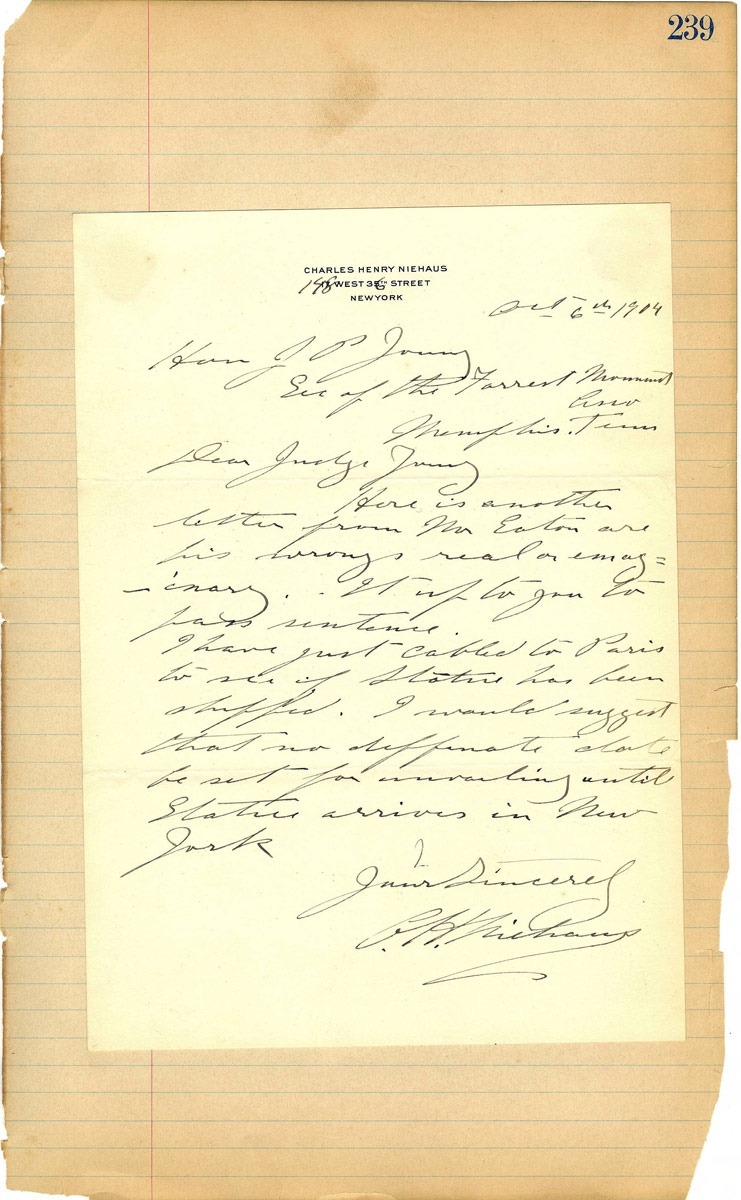 239
CHARLES HENRY NIEHAUS
148 WEST 36TH STREET
NEW YORK
Oct 6th 1904
Hon J P Young
Sec of the Forrest Monument
Asso
Memphis. Tenn
Dear Judge Young
Here is another
letter from Mr Eaton are
his wrongs real or emag=
-inary. . It up to you to
pass sentence.
I have just cabled to Paris
to see if Statue has been
shipped. I would suggest
that no deffinate date
be set for unvailing until
Statue arrives in New
York
Yours Sincerely
C. H. Niehaus